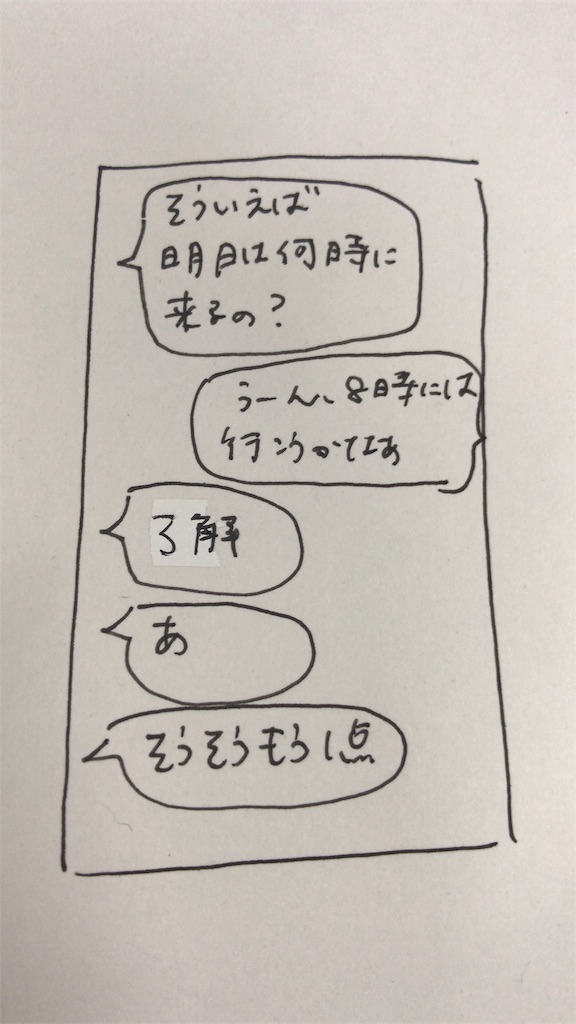 そういえば
明日は何時に
来るの?
うーん、8時には
行こうかなぁ
了解
あ
そうそうもう1点